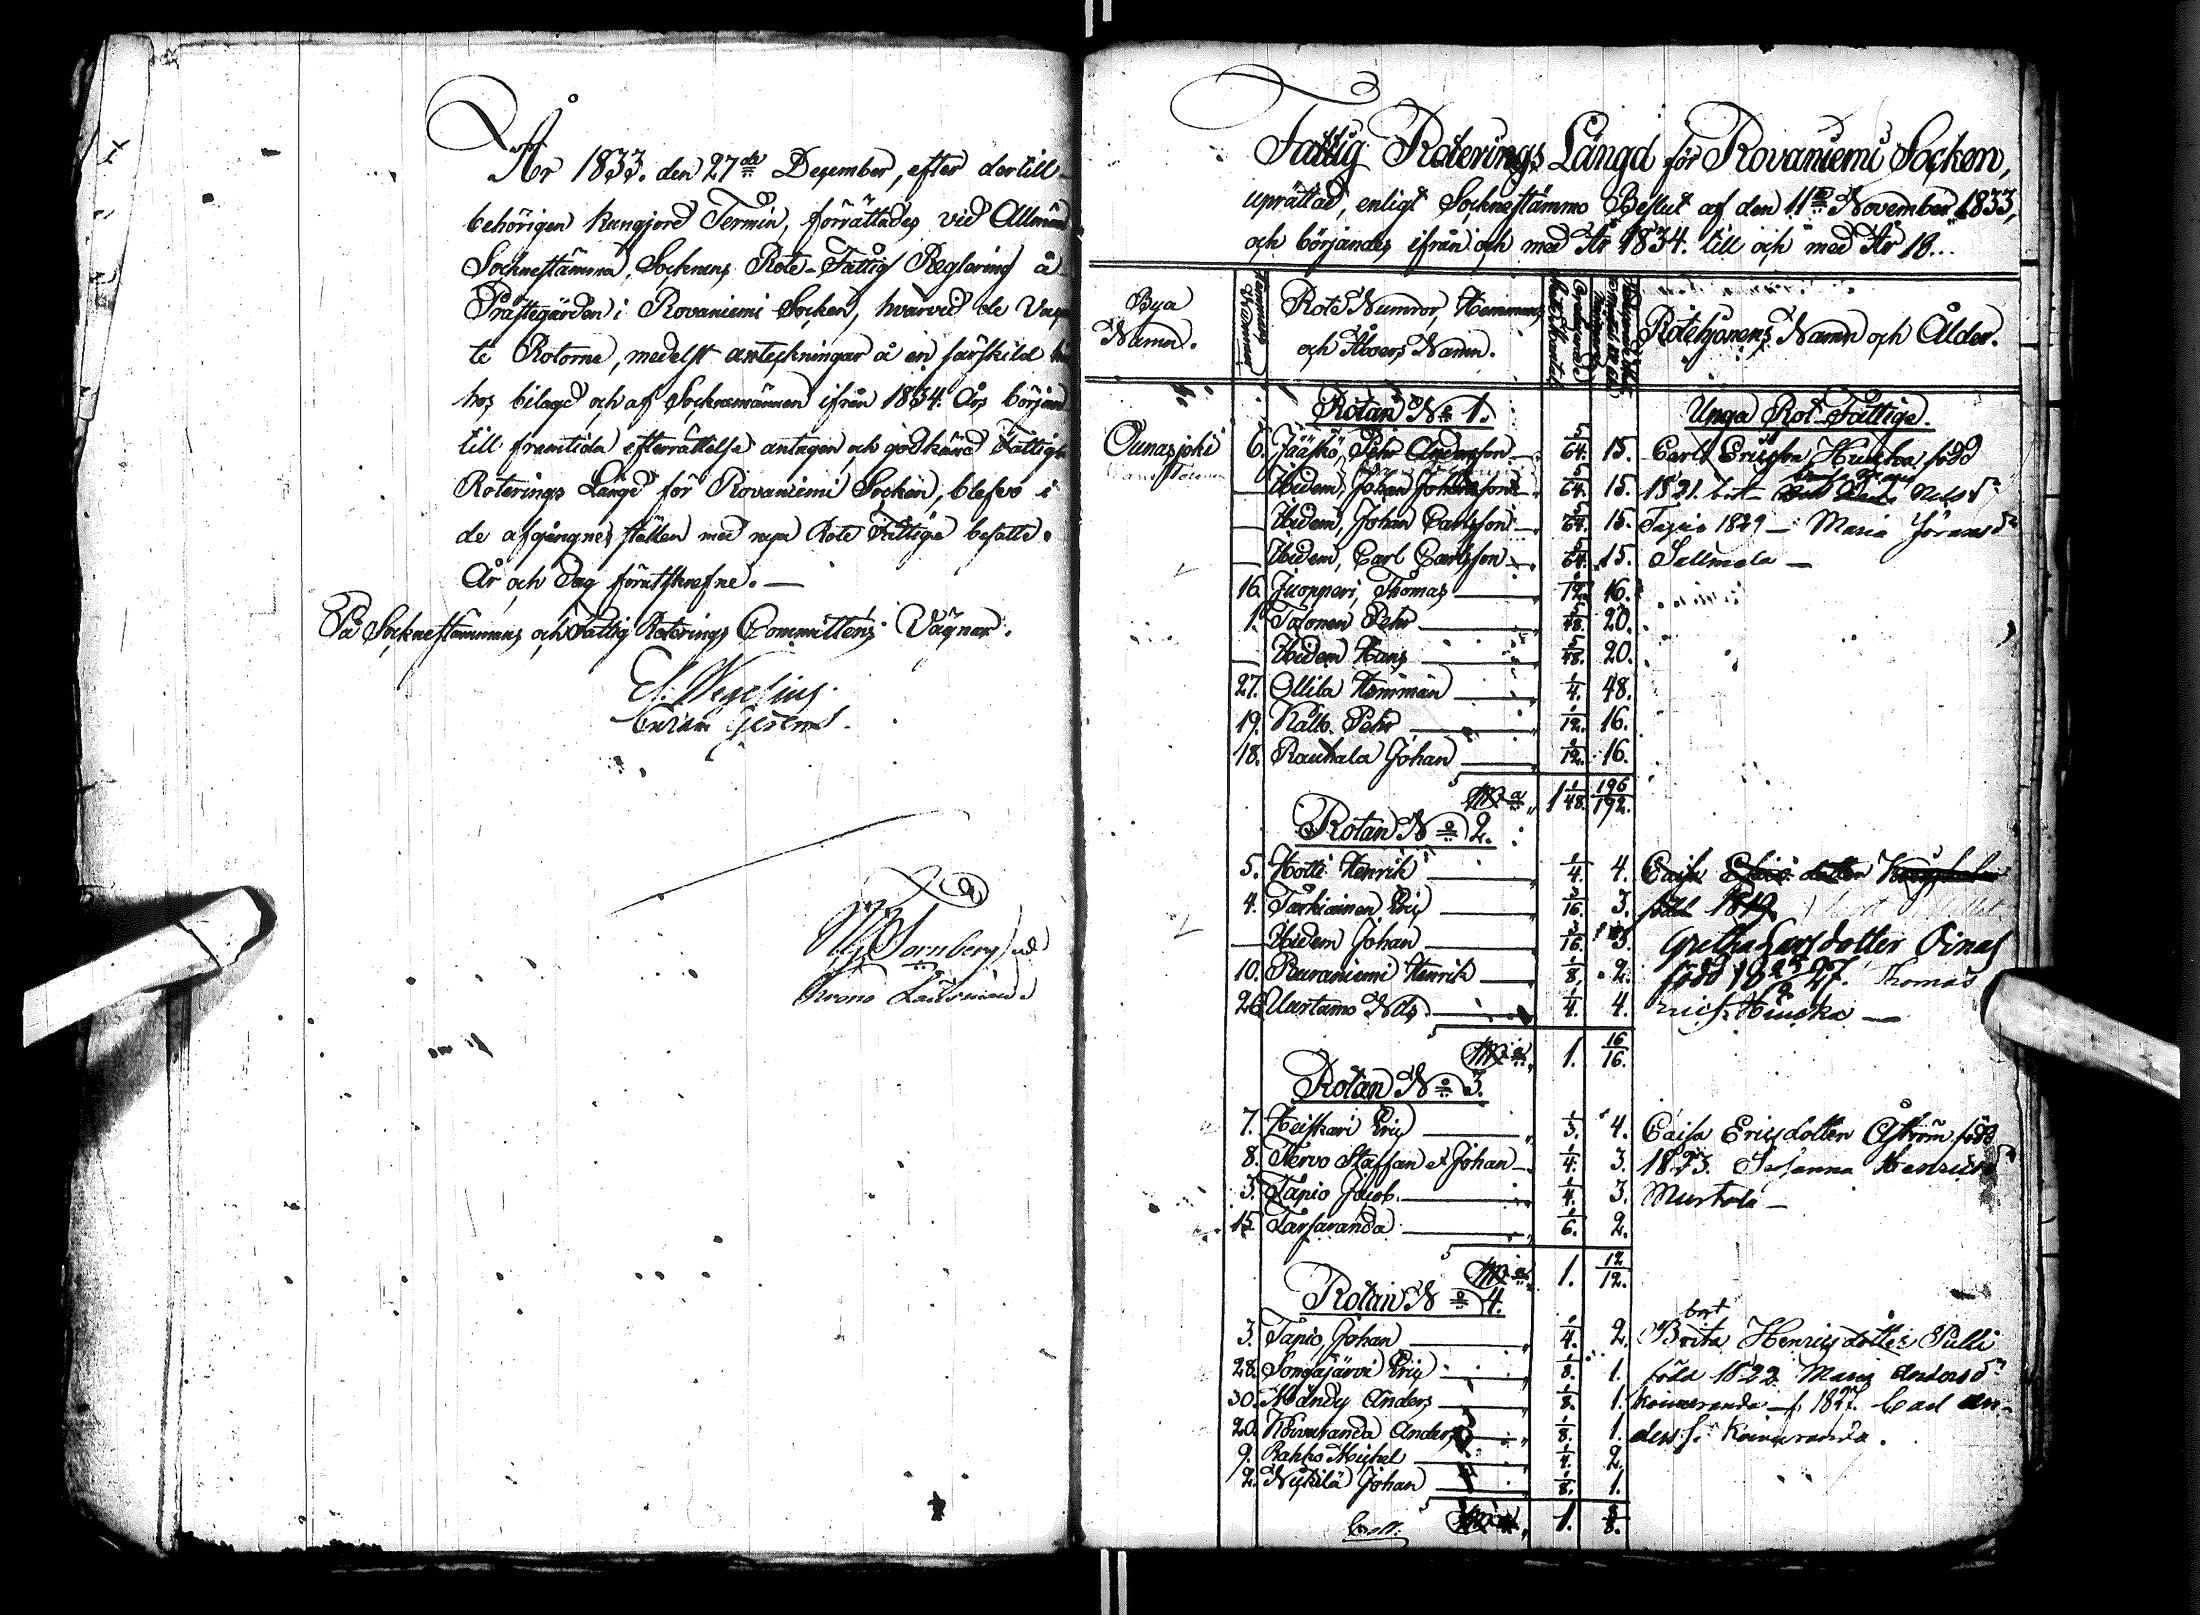 År 1833. den 27de December, efter dertill
behörigen kungjord Termin, förrättades vid Allmän
Sockne stämma, Socknens Rote-Fattig Reglering å
Prästegården i Rovaniemi Socken, hvarvid de
te Rotorne, medelst anteckningar å en särskild
hos bilagd och af Socknemännen ifrån 1834. Års början
till framtida efterrättelse antagen och godkänd Fattig
Roterings Längd för Rovaniemi Socken, blefvo i
de afgångnes ställen med nya Rote Fattige besatte.
År och Dag förutskrefne. —
På Sockne stämmans och Fattig Roterings Committens Vägnar.
Wegelius
Fattig Roterings Längd för Rovaniemi Socken,
uprättad, enligt Sockne stämmo Beslut af den 11te November 1833,
och börjandes ifrån och med År 1834. till och med År 18...
Bya Namn.
Rote Numror, Hemmans och Åboers Namn.
Rotehjonens Namn och Ålder.
Rotan No 1. Unga Rot-Fattige.
Ounasjoki 6. Jääskö, Pehr Andersson 5/64. 15. Carl Ericsson Huuska född
— Ibidem, Johan Johansson 5/64. 15. 1821. Nils dr
— Ibidem, Johan Carlsson 5/64. 15. Tapio 1829 — Maria Jörans dr
— Ibidem, Carl Carlsson 5/64. 15. Sallmela —
16. Juopperi, Thomas 1/12. 16.
1. Tolonen Pehr 5/48. 20.
— Ibidem Hans 5/48. 20.
27. Ollila Hemman 1/4. 48.
19. Kätt. Pehr 1/12. 16.
18. Rauhala Johan 1/12. 16.
1 1/48. 196/192.
Rotan No 2.
5. Hotti Henrik 1/4. 4. Caisa
4. Tarkiainen Eric 3/16. 3. född 1819
— Ibidem Johan 3/16. 3. Gretha Lars dotter Oinas
10. Ruraniemi Henrik 1/8. 2. född 1827. Thomas
26. Uurtamo Nils 1/4. 4. Erics. Huuska —
1. 16/16.
Rotan No 3.
7. Heiskari Eric 1/3. 4. Caisa Ericsdotter Åström född
8. Hervo Staffan et Johan 1/4. 3. 1823. Susanna Henrics dr
3. Tapio Jacob 1/4. 3. Murtola —
15. Tarsaranda 1/6. 2.
1. 12/12.
Rotan No 4.
bort
3. Tapio, Johan 1/4. 2. Brita Henricsdotter Pulli
28. Songajärvi Eric 1/8. 1. född 1822 Maria Anders dr
30. Mändy Anders 1/8. 1. Koivuranda f. 1827. Carl An-
20. Koivuranda Anders 1/8. 1. ders s. Koivuranda.
9. Rahko Michel 1/4. 2.
2. Niskilä Johan 1/8. 1.
1. 8/8.